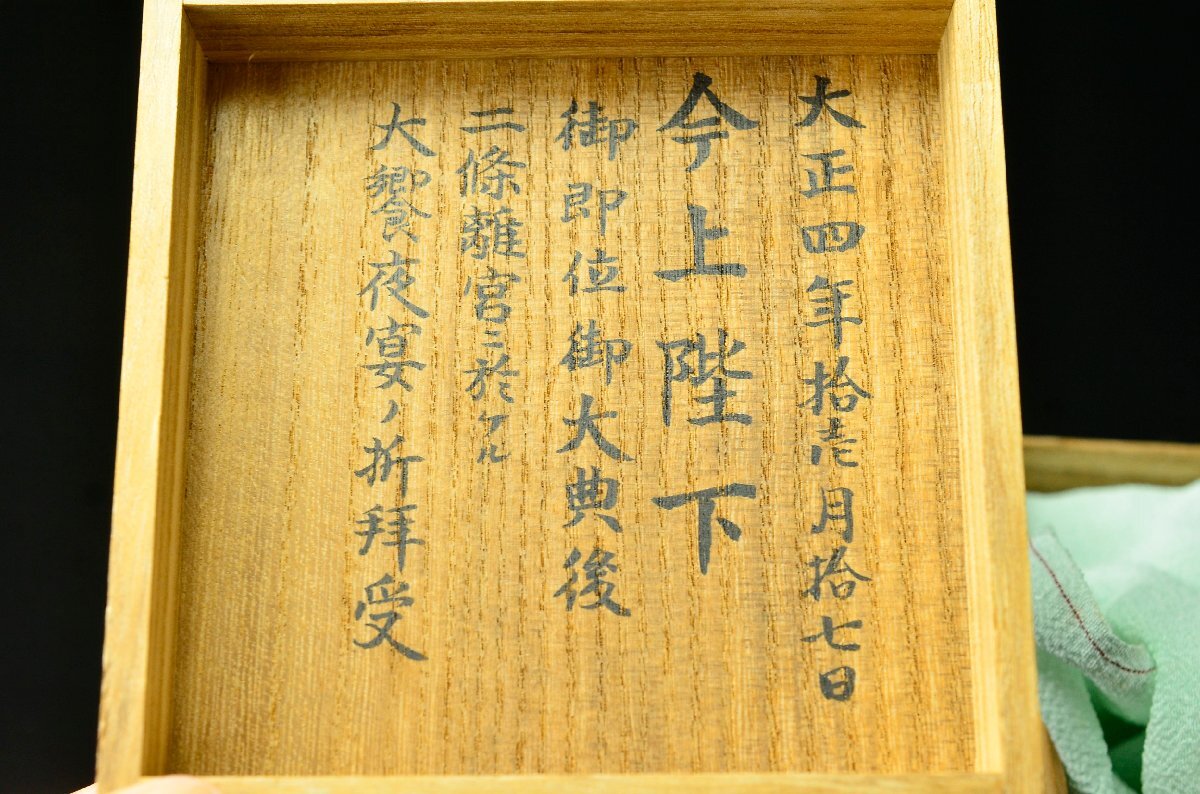 大正四年拾壱月拾七日
今上陛下
御即位御大典後
二條離宮ニ於ケル
大饗夜宴ノ折拜受